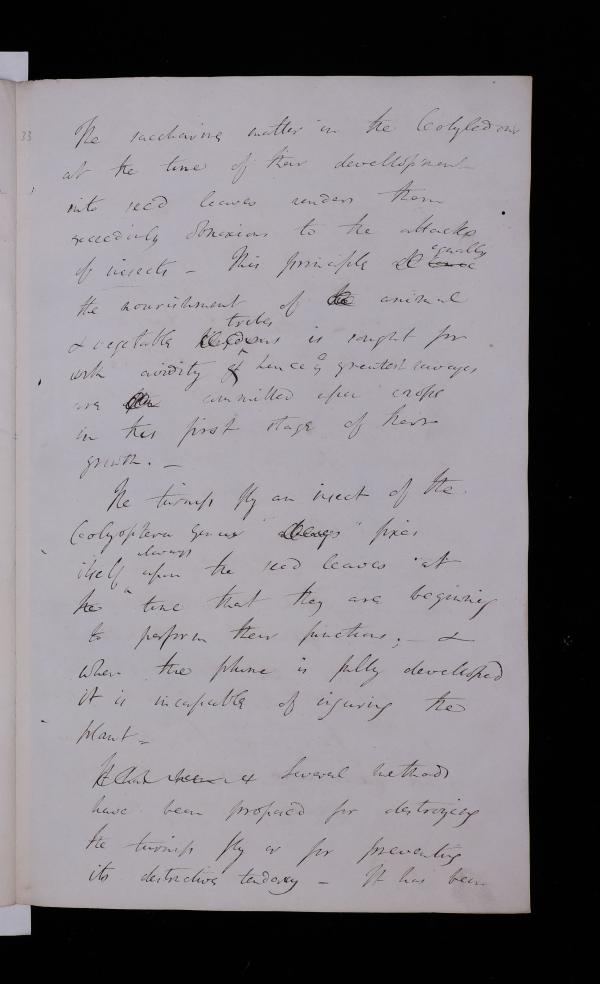 33
The saccharine matter in the Cotyledons
at the time of their developement
into seed leaves renders them
exceedingly obnoxious to the attacks
of insects - This principle equally
the nourishment of the animal
& vegetable tribes is sought for
with avidity & hence greatest ravages
are committed upon crops
in this first stage of their
growth. -
The turnip fly an insect of the
Colyoptera genus always fixes
itself always upon the seed leaves at
the time that they are beginning
to perform their functions; - &
when the plume is fully developed
it is incapable of injuring the
plant -
It has been Several methods
have been proposed for destroying
the turnip fly or for preventing
its destructive tendency - It has been